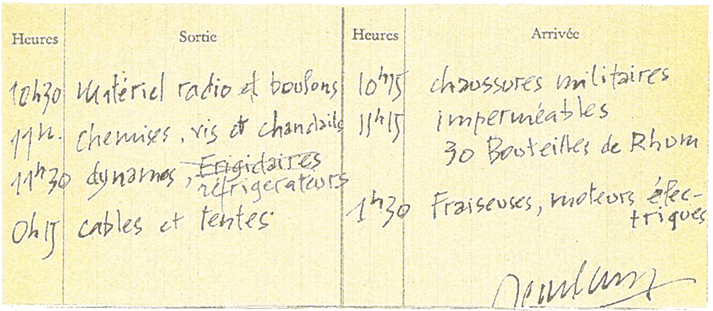 Heures Sortie Heures Arrivée
10h30 Matériel radio et boulons 10h15 chaussures militaires
11h. Chemises, vis et chandails 11h15 imperméables
30 Bouteilles de Rhum
11h30 dynamos, Frigidaires
réfrigérateurs
1h30 Fraiseuses, moteurs élec-
triques
0h15 cables et tentes